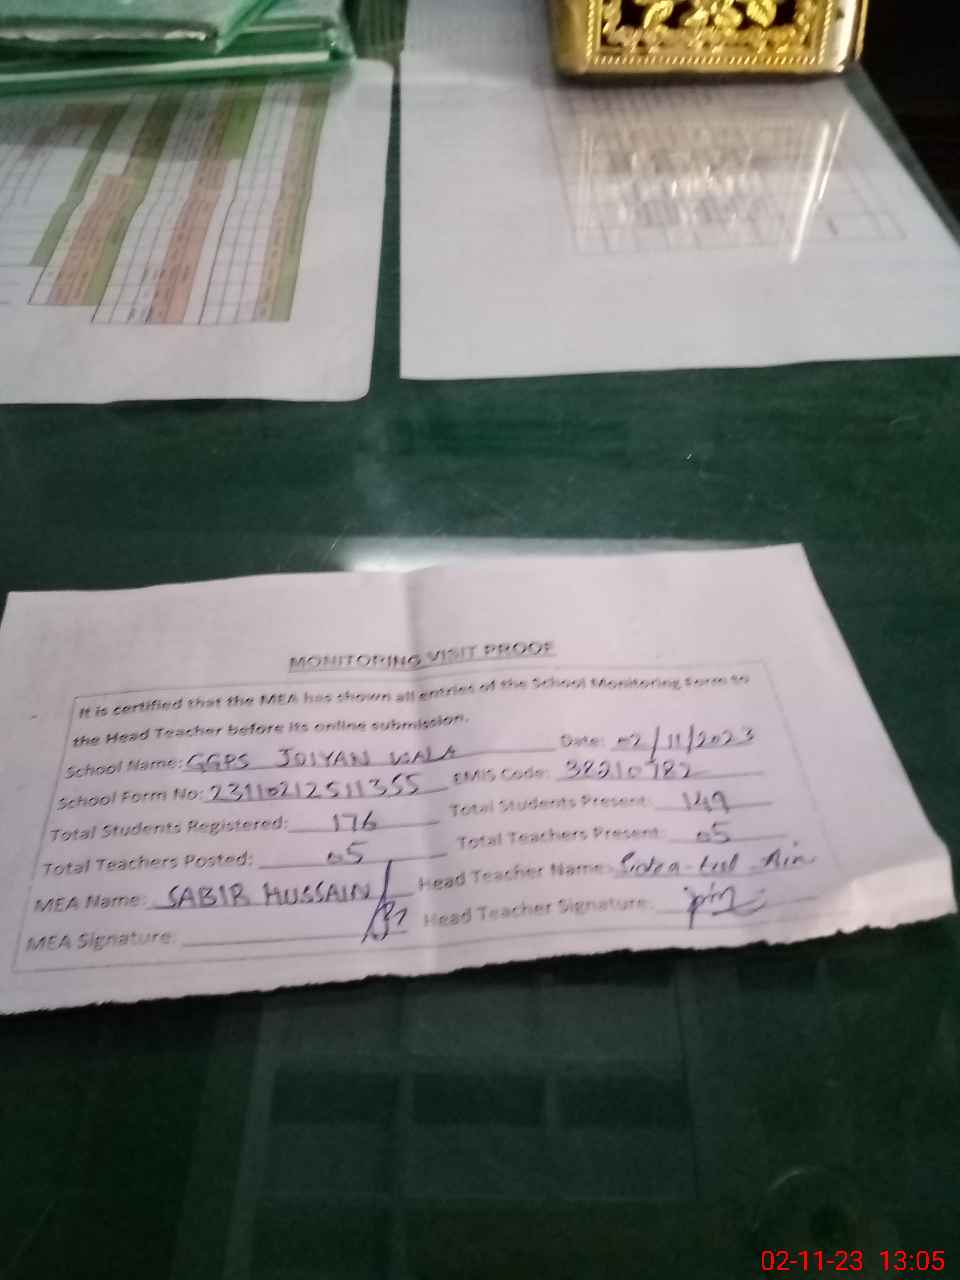 MONITORING VISIT PROOF
It is certified that the MEA has shown all entries of the School Monitoring Form to
the Head Teacher before its online submission.
School Name: GGPS JOIYAN WALA Date: 02/11/2023
School Form No: 23110212511355 EMIS Code: 38210782
Total Students Registered: 176 Total Students Present: 149
Total Teachers Posted: 05 Total Teachers Present: 05
MEA Name: SABIR HUSSAIN Head Teacher Name:
MEA Signature: Head Teacher Signature:
02-11-23 13:05